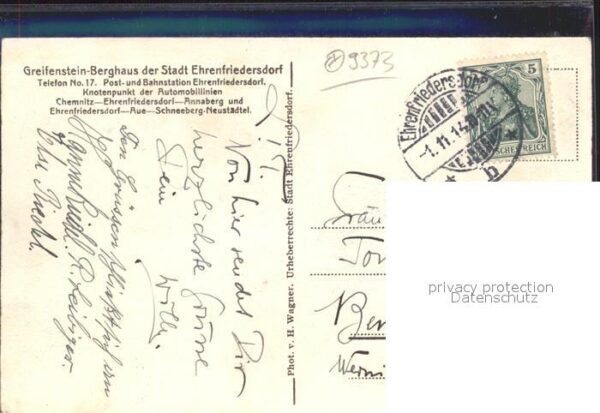 Greifenstein-Berghaus der Stadt Ehrenfriedersdorf
Telefon No. 17. Post- und Bahnstation Ehrenfriedersdorf.
Knotenpunkt der Automobillinien
Chemnitz—Ehrenfriedersdorf—Annaberg und
Ehrenfriedersdorf—Aue—Schneeberg-Neustädtel.
9373
Ehrenfriedersdorf
-1.11.14
b
5
DEUTSCHES REICH
Von hier sendet Dir
herzlichste Grüsse
Dein
Willi.
Den Grüssen schließt sich an
Phot. v. H. Wagner. Urheberrechte: Stadt Ehrenfriedersdorf.
Fräu
Ber
Werni
privacy protection
Datenschutz